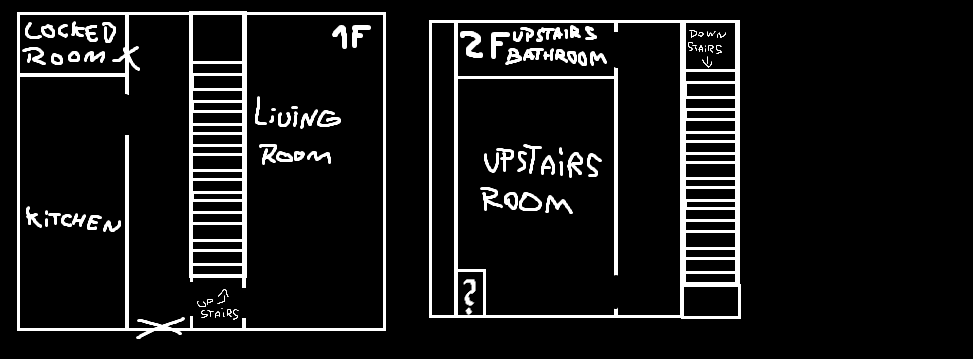 LOCKED
ROOM X
1F
LiViNG
ROOM
KiTCHEN
UP
STAiRS
2F UPSTAIRS
BATHROOM
DOWN
STAIRS
UPSTAiRS
ROOM
?